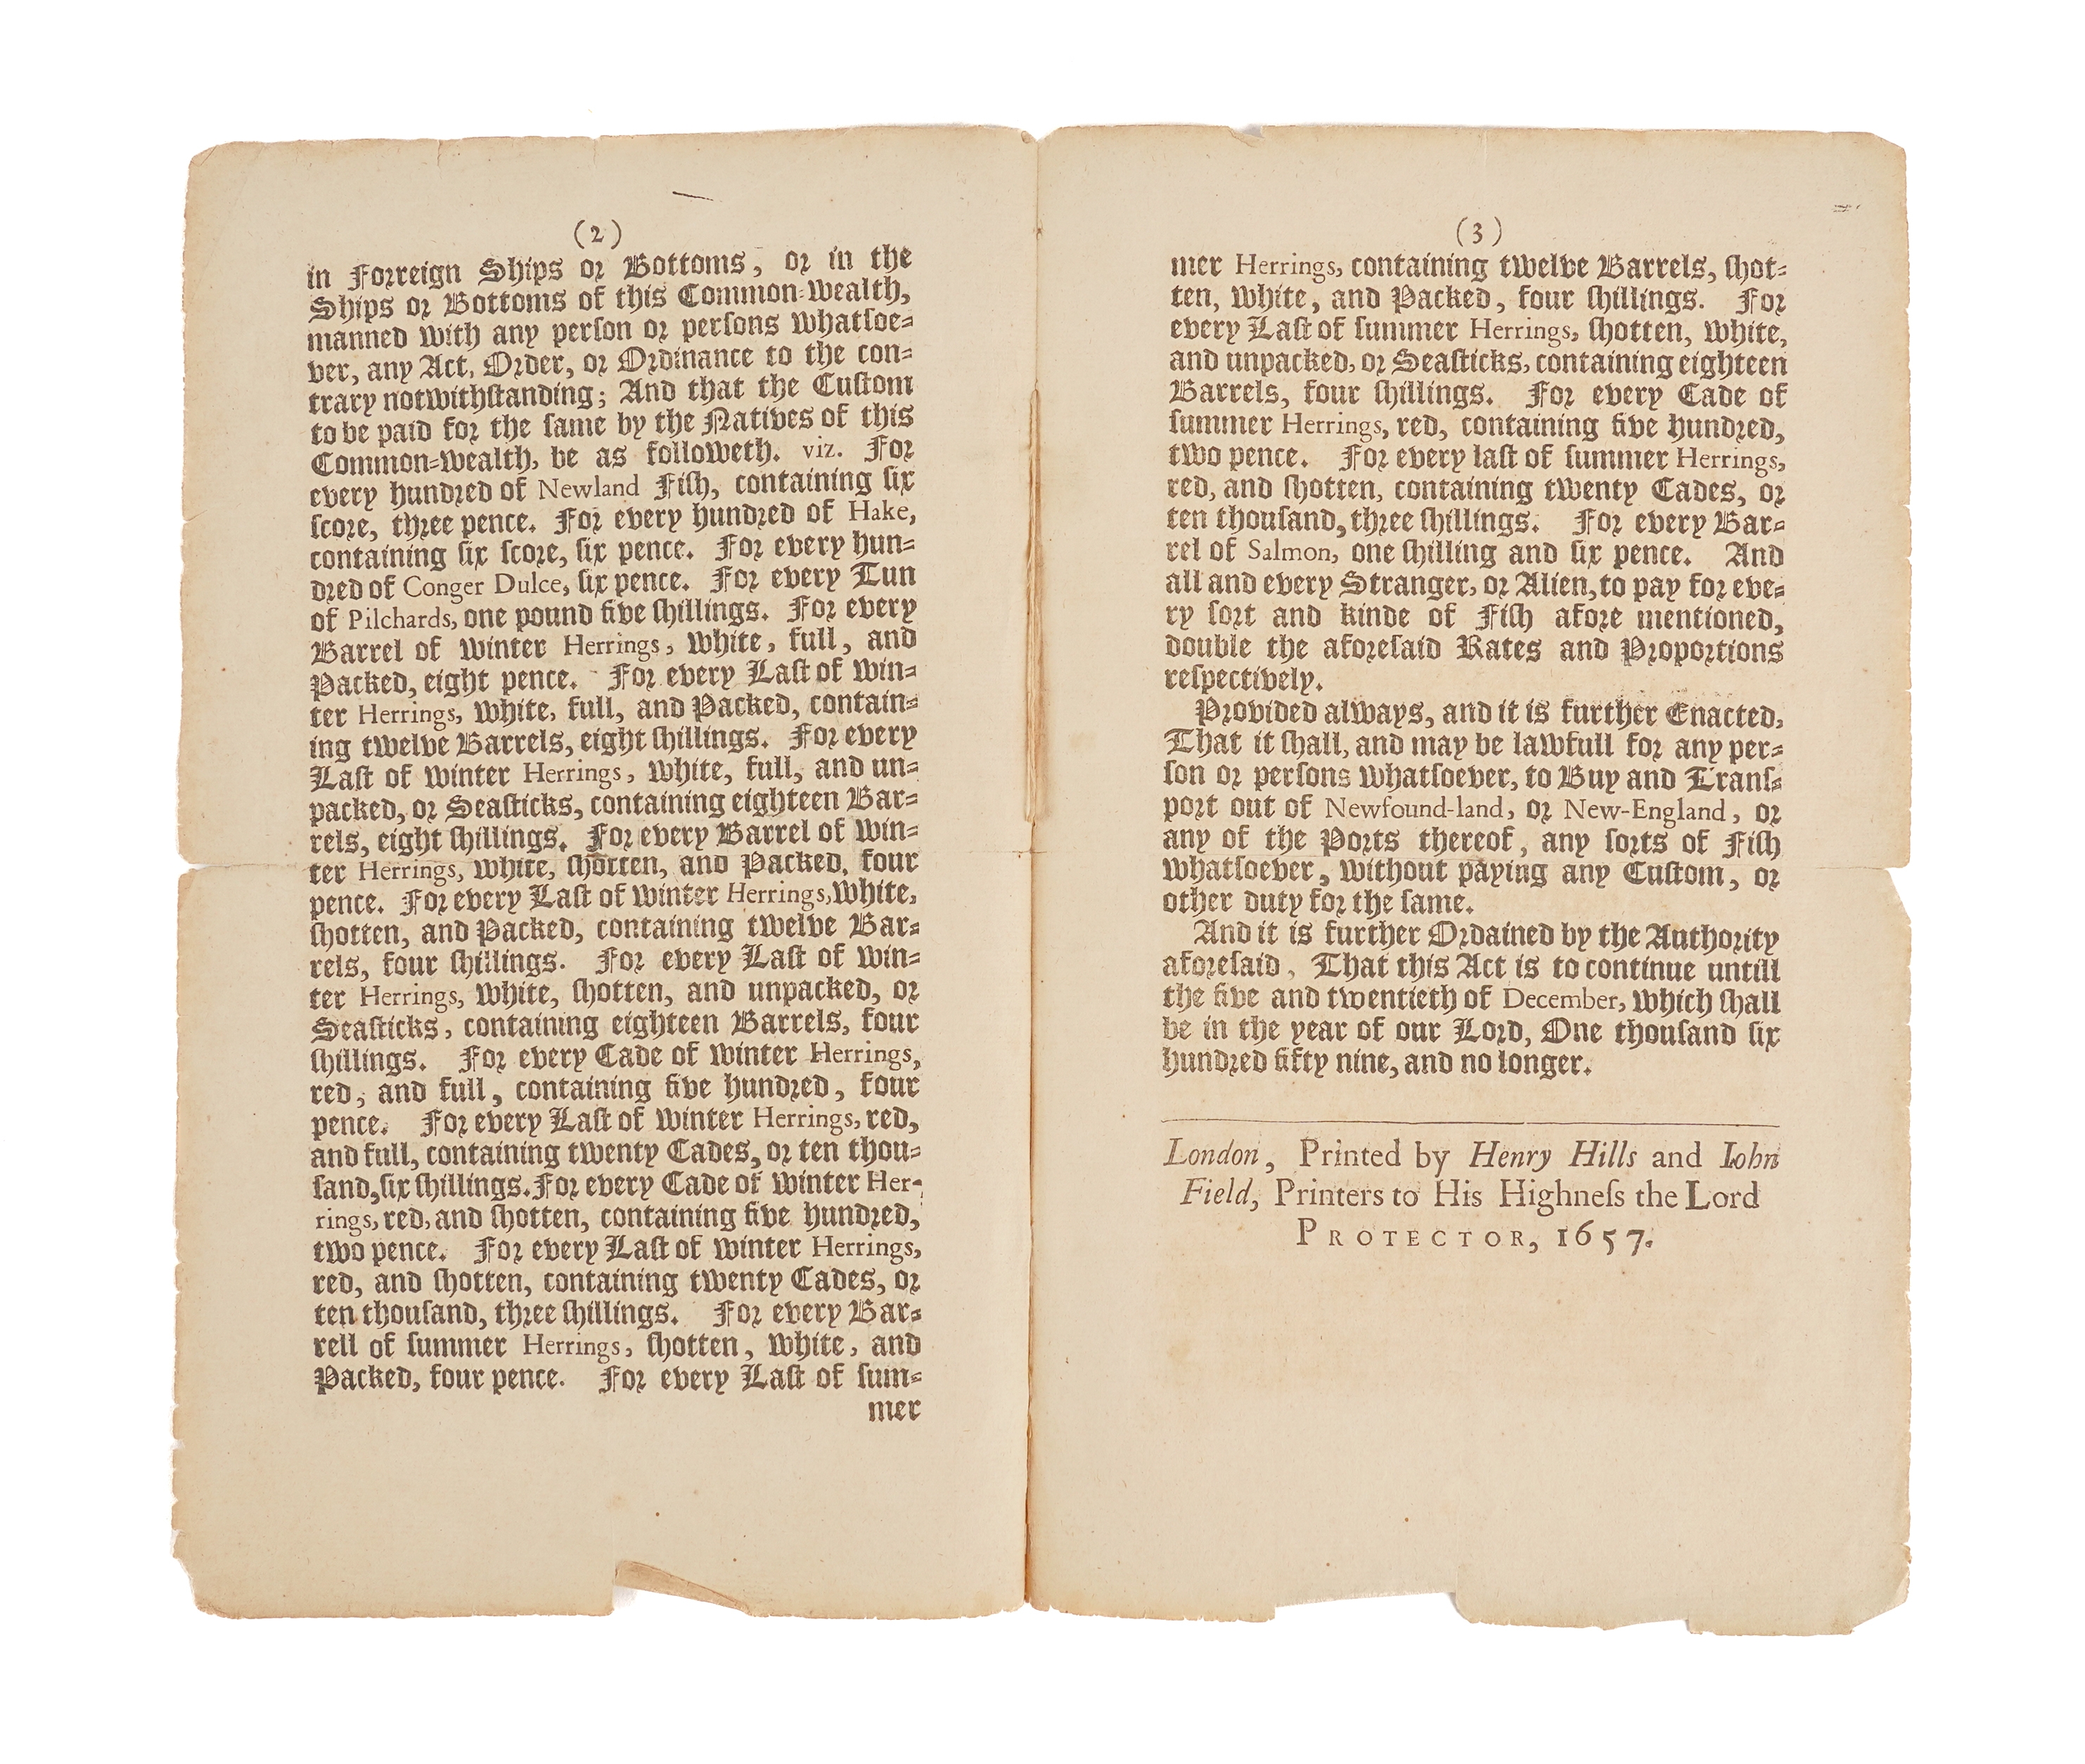 (2)
in Forreign Ships or Bottoms, or in the
Ships or Bottoms of this Common-wealth,
manned with any perſon or perſons whatſoe-
ver, any Act, Order, or Ordinance to the con-
trary notwithſtanding; And that the Cuſtom
to be paid for the ſame by the Natives of this
Common-wealth, be as followeth. viz. For
every hundred of Newland Fiſh, containing ſix
ſcore, three pence. For every hundred of Hake,
containing ſix ſcore, ſix pence. For every hun-
dred of Conger Dulce, ſix pence. For every Tun
of Pilchards, one pound five ſhillings. For every
Barrel of winter Herrings, white, full, and
Packed, eight pence. For every Laſt of win-
ter Herrings, white, full, and Packed, contain-
ing twelve Barrels, eight ſhillings. For every
Laſt of winter Herrings, white, full, and un-
packed, or Seaſticks, containing eighteen Bar-
rels, eight ſhillings. For every Barrel of win-
ter Herrings, white, ſhotten, and Packed, four
pence. For every Laſt of winter Herrings, white,
ſhotten, and Packed, containing twelve Bar-
rels, four ſhillings. For every Laſt of win-
ter Herrings, white, ſhotten, and unpacked, or
Seaſticks, containing eighteen Barrels, four
ſhillings. For every Cade of winter Herrings,
red, and full, containing five hundred, four
pence. For every Laſt of winter Herrings, red,
and full, containing twenty Cades, or ten thou-
ſand, ſix ſhillings. For every Cade of winter Her-
rings, red, and ſhotten, containing five hundred,
two pence. For every Laſt of winter Herrings,
red, and ſhotten, containing twenty Cades, or
ten thouſand, three ſhillings. For every Bar-
rell of ſummer Herrings, ſhotten, white, and
Packed, four pence. For every Laſt of ſum-
mer
(3)
mer Herrings, containing twelve Barrels, ſhot-
ten, white, and Packed, four ſhillings. For
every Laſt of ſummer Herrings, ſhotten, white,
and unpacked, or Seaſticks, containing eighteen
Barrels, four ſhillings. For every Cade of
ſummer Herrings, red, containing five hundred,
two pence. For every laſt of ſummer Herrings,
red, and ſhotten, containing twenty Cades, or
ten thouſand, three ſhillings. For every Bar-
rel of Salmon, one ſhilling and ſix pence. And
all and every Stranger, or Alien, to pay for eve-
ry ſort and kinde of Fiſh afore mentioned,
double the aforeſaid Rates and Proportions
reſpectively.
Provided always, and it is further Enacted,
That it ſhall, and may be lawfull for any per-
ſon or perſons whatſoever, to Buy and Tranſ-
port out of Newfound-land, or New-England, or
any of the Ports thereof, any ſorts of Fiſh
whatſoever, without paying any Cuſtom, or
other duty for the ſame.
And it is further Ordained by the Authority
aforeſaid, That this Act is to continue untill
the five and twentieth of December, which ſhall
be in the year of our Lord, One thouſand ſix
hundred fifty nine, and no longer.
London, Printed by Henry Hills and Iohn
Field, Printers to His Highneſs the Lord
PROTECTOR, 1657.